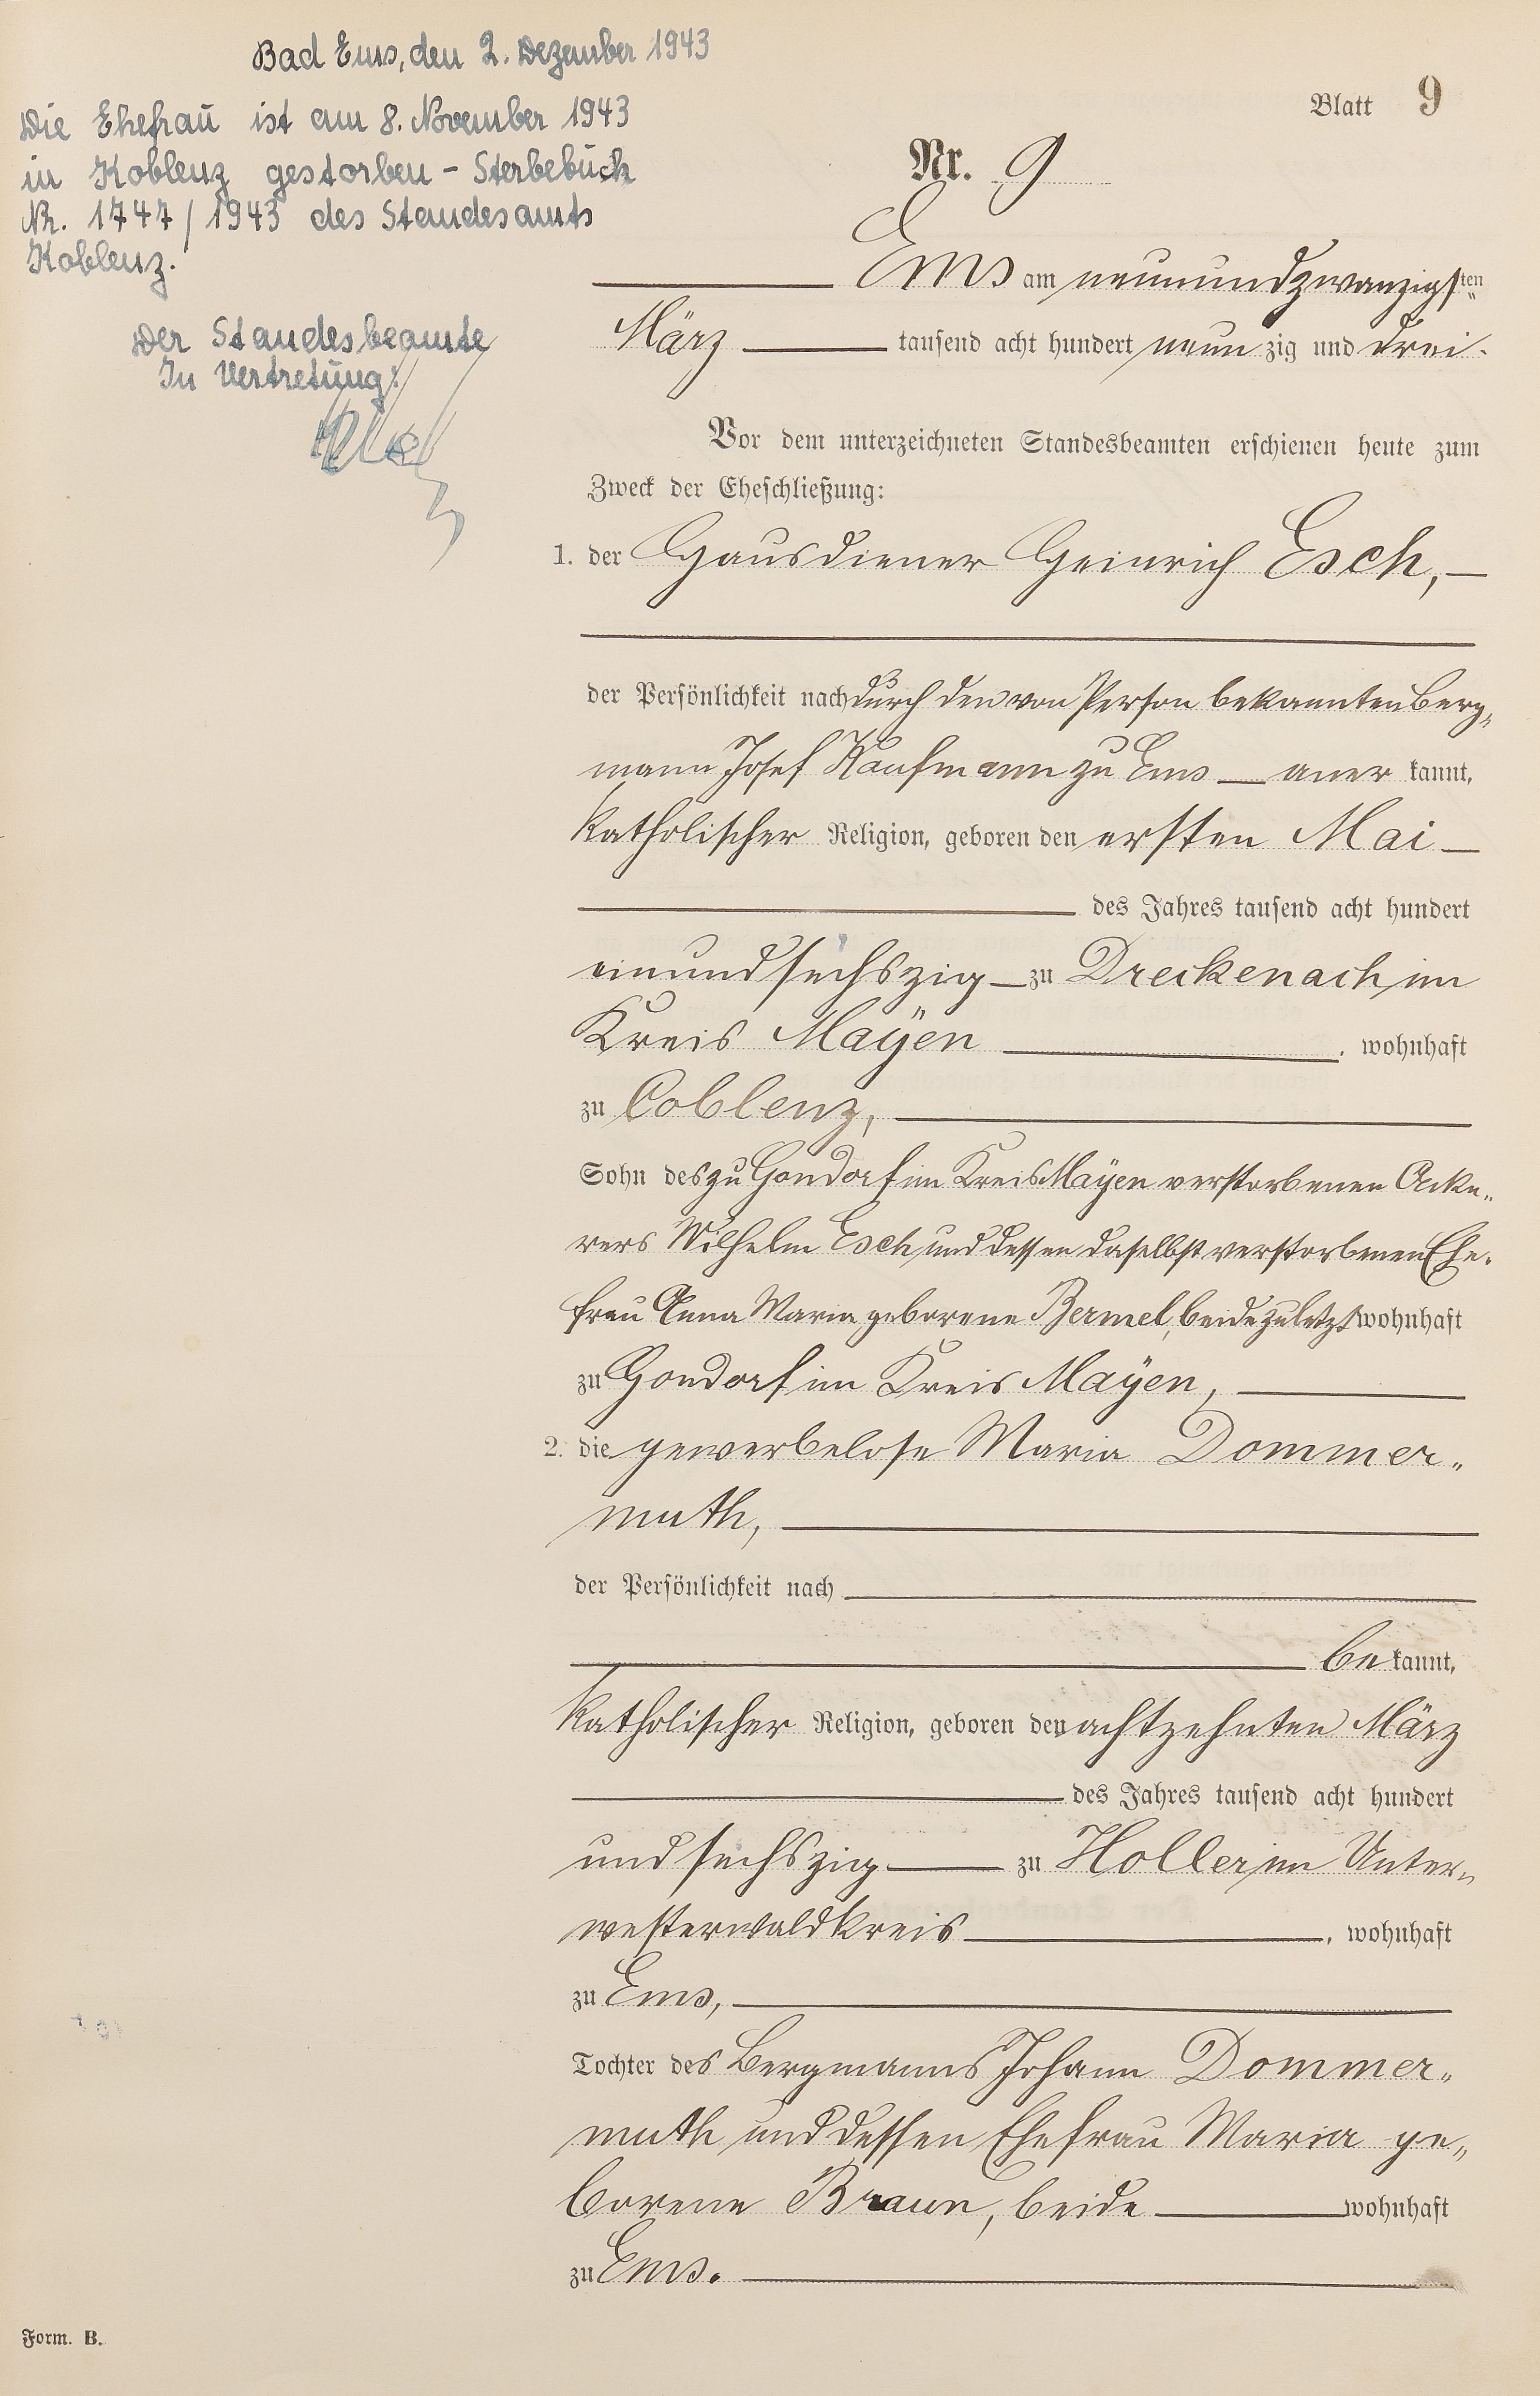 Bad Ems, den 2. Dezember 1943
Die Ehefrau ist am 8. November 1943
in Koblenz gestorben – Sterbebuch
Nr. 1747/1943 des Standesamts
Koblenz.
Der Standesbeamte
In Vertretung:
Blatt 9
Nr. 9
Ems am neunundzwanzigsten
März tausend acht hundert neunzig und drei.
Vor dem unterzeichneten Standesbeamten erschienen heute zum
Zweck der Eheschließung:
1. der Hausdiener Heinrich Esch,
der Persönlichkeit nach durch den von Person bekannten Berg-
mann Josef Kaufmann zu Ems anerkannt,
katholischer Religion, geboren den ersten Mai
des Jahres tausend acht hundert
einundsechszig zu Dreckenach im
Kreis Mayen, wohnhaft
zu Coblenz,
Sohn des zu Gondorf im Kreis Mayen verstorbenen Acke-
rers Wilhelm Esch und dessen daselbst verstorbenen Ehe-
frau Anna Maria geborene Bermel, beide zuletzt wohnhaft
zu Gondorf im Kreis Mayen,
2. die gewerbelose Maria Dommer-
muth,
der Persönlichkeit nach
bekannt,
katholischer Religion, geboren den achtzehnten März
des Jahres tausend acht hundert
und sechszig zu Holler im Unter-
westerwaldkreis, wohnhaft
zu Ems,
Tochter des Bergmanns Johann Dommer-
muth und dessen Ehefrau Maria ge-
borene Braun, beide wohnhaft
zu Ems.
Form. B.